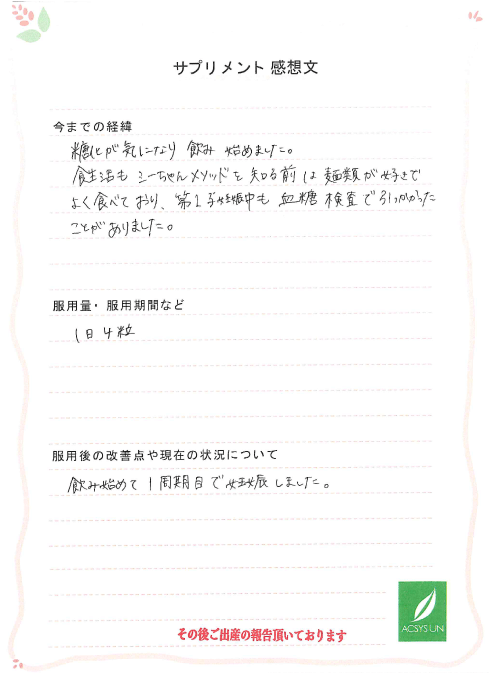 サプリメント 感想文
今までの経緯
糖化が気になり 飲み 始めました。
食生活も シーちゃんメソッドを 知る前は 麺類が好きで
よく食べており、第1子妊娠中も 血糖 検査で引っかかった
ことがありました。
服用量・服用期間など
1日4粒
服用後の改善点や現在の状況について
飲み始めて 1周期目で妊娠しました。
その後ご出産の報告頂いております
ACSYSUN